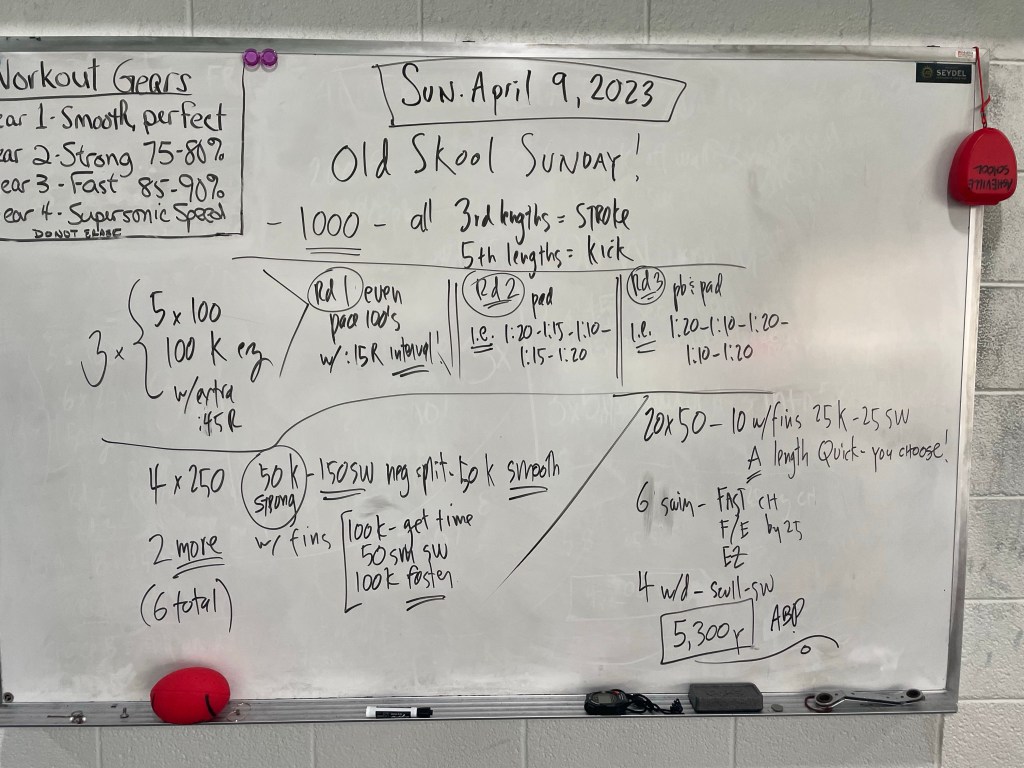 Workout Gears
ear 1 - Smooth, perfect
ear 2 - Strong 75-80%
ear 3 - Fast 85-90%
ear 4 - Supersonic Speed
DO NOT ERASE
SUN. April 9, 2023
SEYDEL
Old Skool SUNDAY!
- 1000 - all 3rd lengths = STROKE
5th lengths = Kick
ASHEVILLE
3 x { 5 x 100
100 K ez
w/extra
:45R
Rd 1 even
pace 100's
w/ :15R interval!
Rd 2 pad
i.e. 1:20-1:15-1:10-
1:15-1:20
Rd 3 pb & pad
i.e. 1:20-1:10-1:20-
1:10-1:20
4 x 250 50 K STRONG - 150 SW neg split - 50 K smooth
2 more w/ fins
(6 total)
100 K - get time
50 sm sw
100 K faster
20 x 50 - 10 w/fins 25 K - 25 SW
A length Quick - you CHOOSE!
6 swim - FAST CH
F/E by 25
EZ
4 w/d - scull-sw
5,300 Y ABP